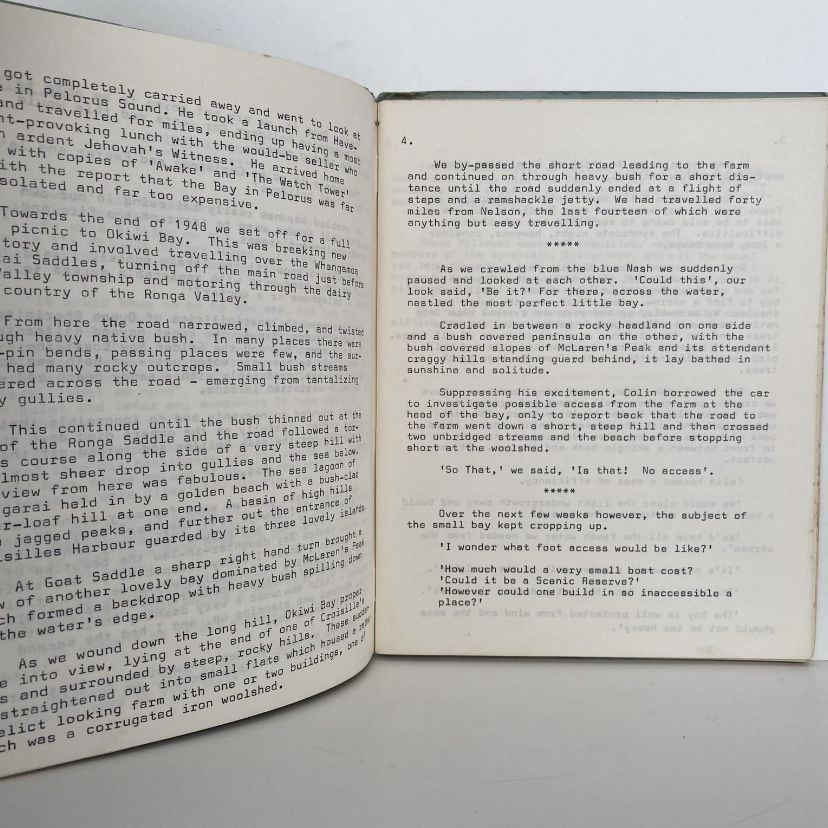 got completely carried away and went to look at
in Pelorus Sound. He took a launch from Have-
and travelled for miles, ending up having a most
nt-provoking lunch with the would-be seller who
ardent Jehovah's Witness. He arrived home
with copies of 'Awake' and 'The Watch Tower'
ith the report that the Bay in Pelorus was far
solated and far too expensive.
Towards the end of 1948 we set off for a full
picnic to Okiwi Bay. This was breaking new
tory and involved travelling over the Whangamoa
ai Saddles, turning off the main road just before
Valley township and motoring through the dairy
country of the Ronga Valley.
From here the road narrowed, climbed, and twisted
ugh heavy native bush. In many places there were
-pin bends, passing places were few, and the sur-
had many rocky outcrops. Small bush streams
ered across the road - emerging from tantalizing
y gullies.
This continued until the bush thinned out at the
of the Ronga Saddle and the road followed a tor-
s course along the side of a very steep hill with
lmost sheer drop into gullies and the sea below.
view from here was fabulous. The sea lagoon of
garai held in by a golden beach with a bush-clad
r-loaf hill at one end. A basin of high hills
jagged peaks, and further out the entrance of
isilles Harbour guarded by its three lovely islands.
At Goat Saddle a sharp right hand turn brought a
w of another lovely bay dominated by McLaren's Peak
ch formed a backdrop with heavy bush spilling down
the water's edge.
As we wound down the long hill, Okiwi Bay proper
e into view, lying at the end of one of Croisille's
s and surrounded by steep, rocky hills. These sudden
straightened out into small flats which housed a
elict looking farm with one or two buildings, one of
ch was a corrugated iron woolshed.
4.
We by-passed the short road leading to the farm
and continued on through heavy bush for a short dis-
tance until the road suddenly ended at a flight of
steps and a ramshackle jetty. We had travelled forty
miles from Nelson, the last fourteen of which were
anything but easy travelling.
*****
As we crawled from the blue Nash we suddenly
paused and looked at each other. 'Could this', our
look said, 'Be it?' For there, across the water,
nestled the most perfect little bay.
Cradled in between a rocky headland on one side
and a bush covered peninsula on the other, with the
bush covered slopes of McLaren's Peak and its attendant
craggy hills standing guard behind, it lay bathed in
sunshine and solitude.
Suppressing his excitement, Colin borrowed the car
to investigate possible access from the farm at the
head of the bay, only to report back that the road to
the farm went down a short, steep hill and then crossed
two unbridged streams and the beach before stopping
short at the woolshed.
'So That,' we said, 'Is that! No access'.
*****
Over the next few weeks however, the subject of
the small bay kept cropping up.
'I wonder what foot access would be like?'
'How much would a very small boat cost?
'Could it be a Scenic Reserve?'
'However could one build in so inaccessible a
place?'